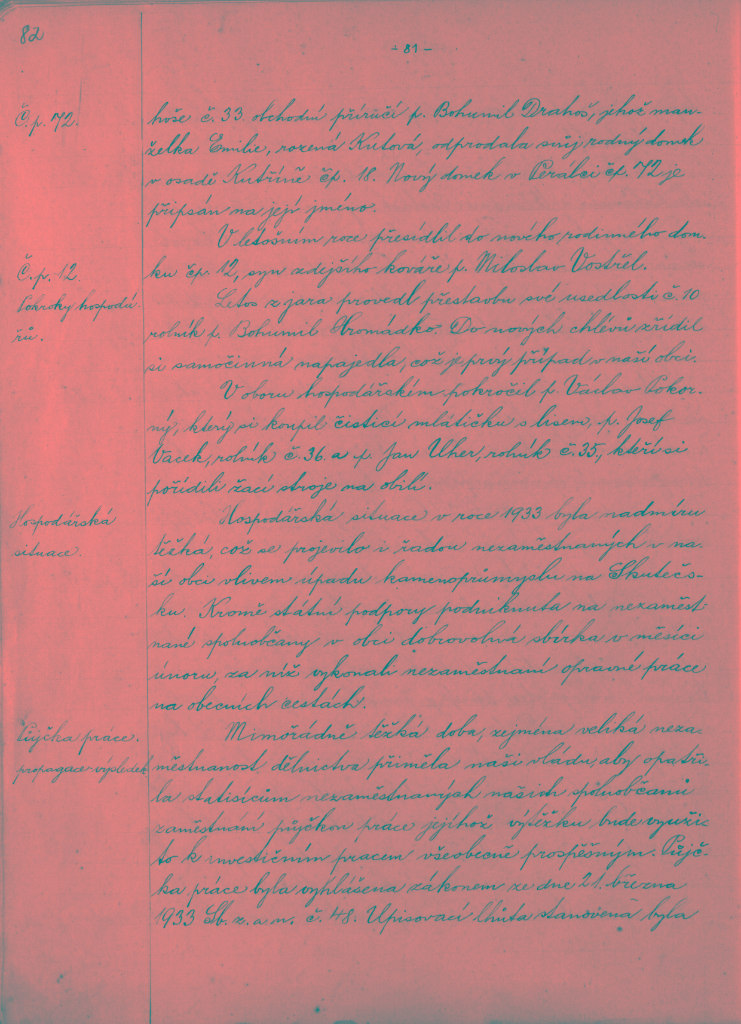 82
- 81 -
Č. p. 72.
hoše č. 33. obchodní příručí p. Bohumil Drahoš, jehož man-
želka Emilie, rozená Kutová, odprodala svůj rodný domek
v osadě Kutříně čp. 18. Nový domek v Perálci čp. 72 je
připsán na její jméno.
V letošním roce přesídlil do nového, rodinného dom-
Č. p. 12.
ku čp. 12, syn zdejšího kováře p. Miloslav Vostřel.
Pokroky hospodá-
řů.
Letos z jara provedl přestavbu své usedlosti č. 10
rolník p. Bohumil Hromádko. Do nových chlévů zřídil
si samočinná napajedla, což je prvý případ v naší obci.
V oboru hospodářském pokročil p. Václav Pokor-
ný, který si koupil čisticí mlátičku s lisem, p. Josef
Vacek, rolník č. 36. a p. Jan Uher, rolník č. 35, kteří si
pořídili žací stroje na obilí.
Hospodářská
situace.
Hospodářská situace v roce 1933 byla nadmíru
těžká, což se projevilo i řadou nezaměstnaných v na-
ší obci vlivem úpadu kamenoprůmyslu na Skutečs-
ku. Kromě státní podpory podniknuta na nezaměst-
nané spoluobčany v obci dobrovolná sbírka v měsíci
únoru, za níž vykonali nezaměstnaní opravné práce
na obecních cestách.
Půjčka práce.
propagace-výsledek
Mimořádně těžká doba, zejména veliká neza-
městnanost dělnictva přiměla naši vládu, aby opatři-
la statisícům nezaměstnaných našich spoluobčanů
zaměstnání půjčkou práce jejíhož výtěžku bude využi-
to k investičním pracem všeobecně prospěšným. Půjč-
ka práce byla vyhlášena zákonem ze dne 21. března
1933 Sb. z. a n. č. 48. Upisovací lhůta stanovena byla